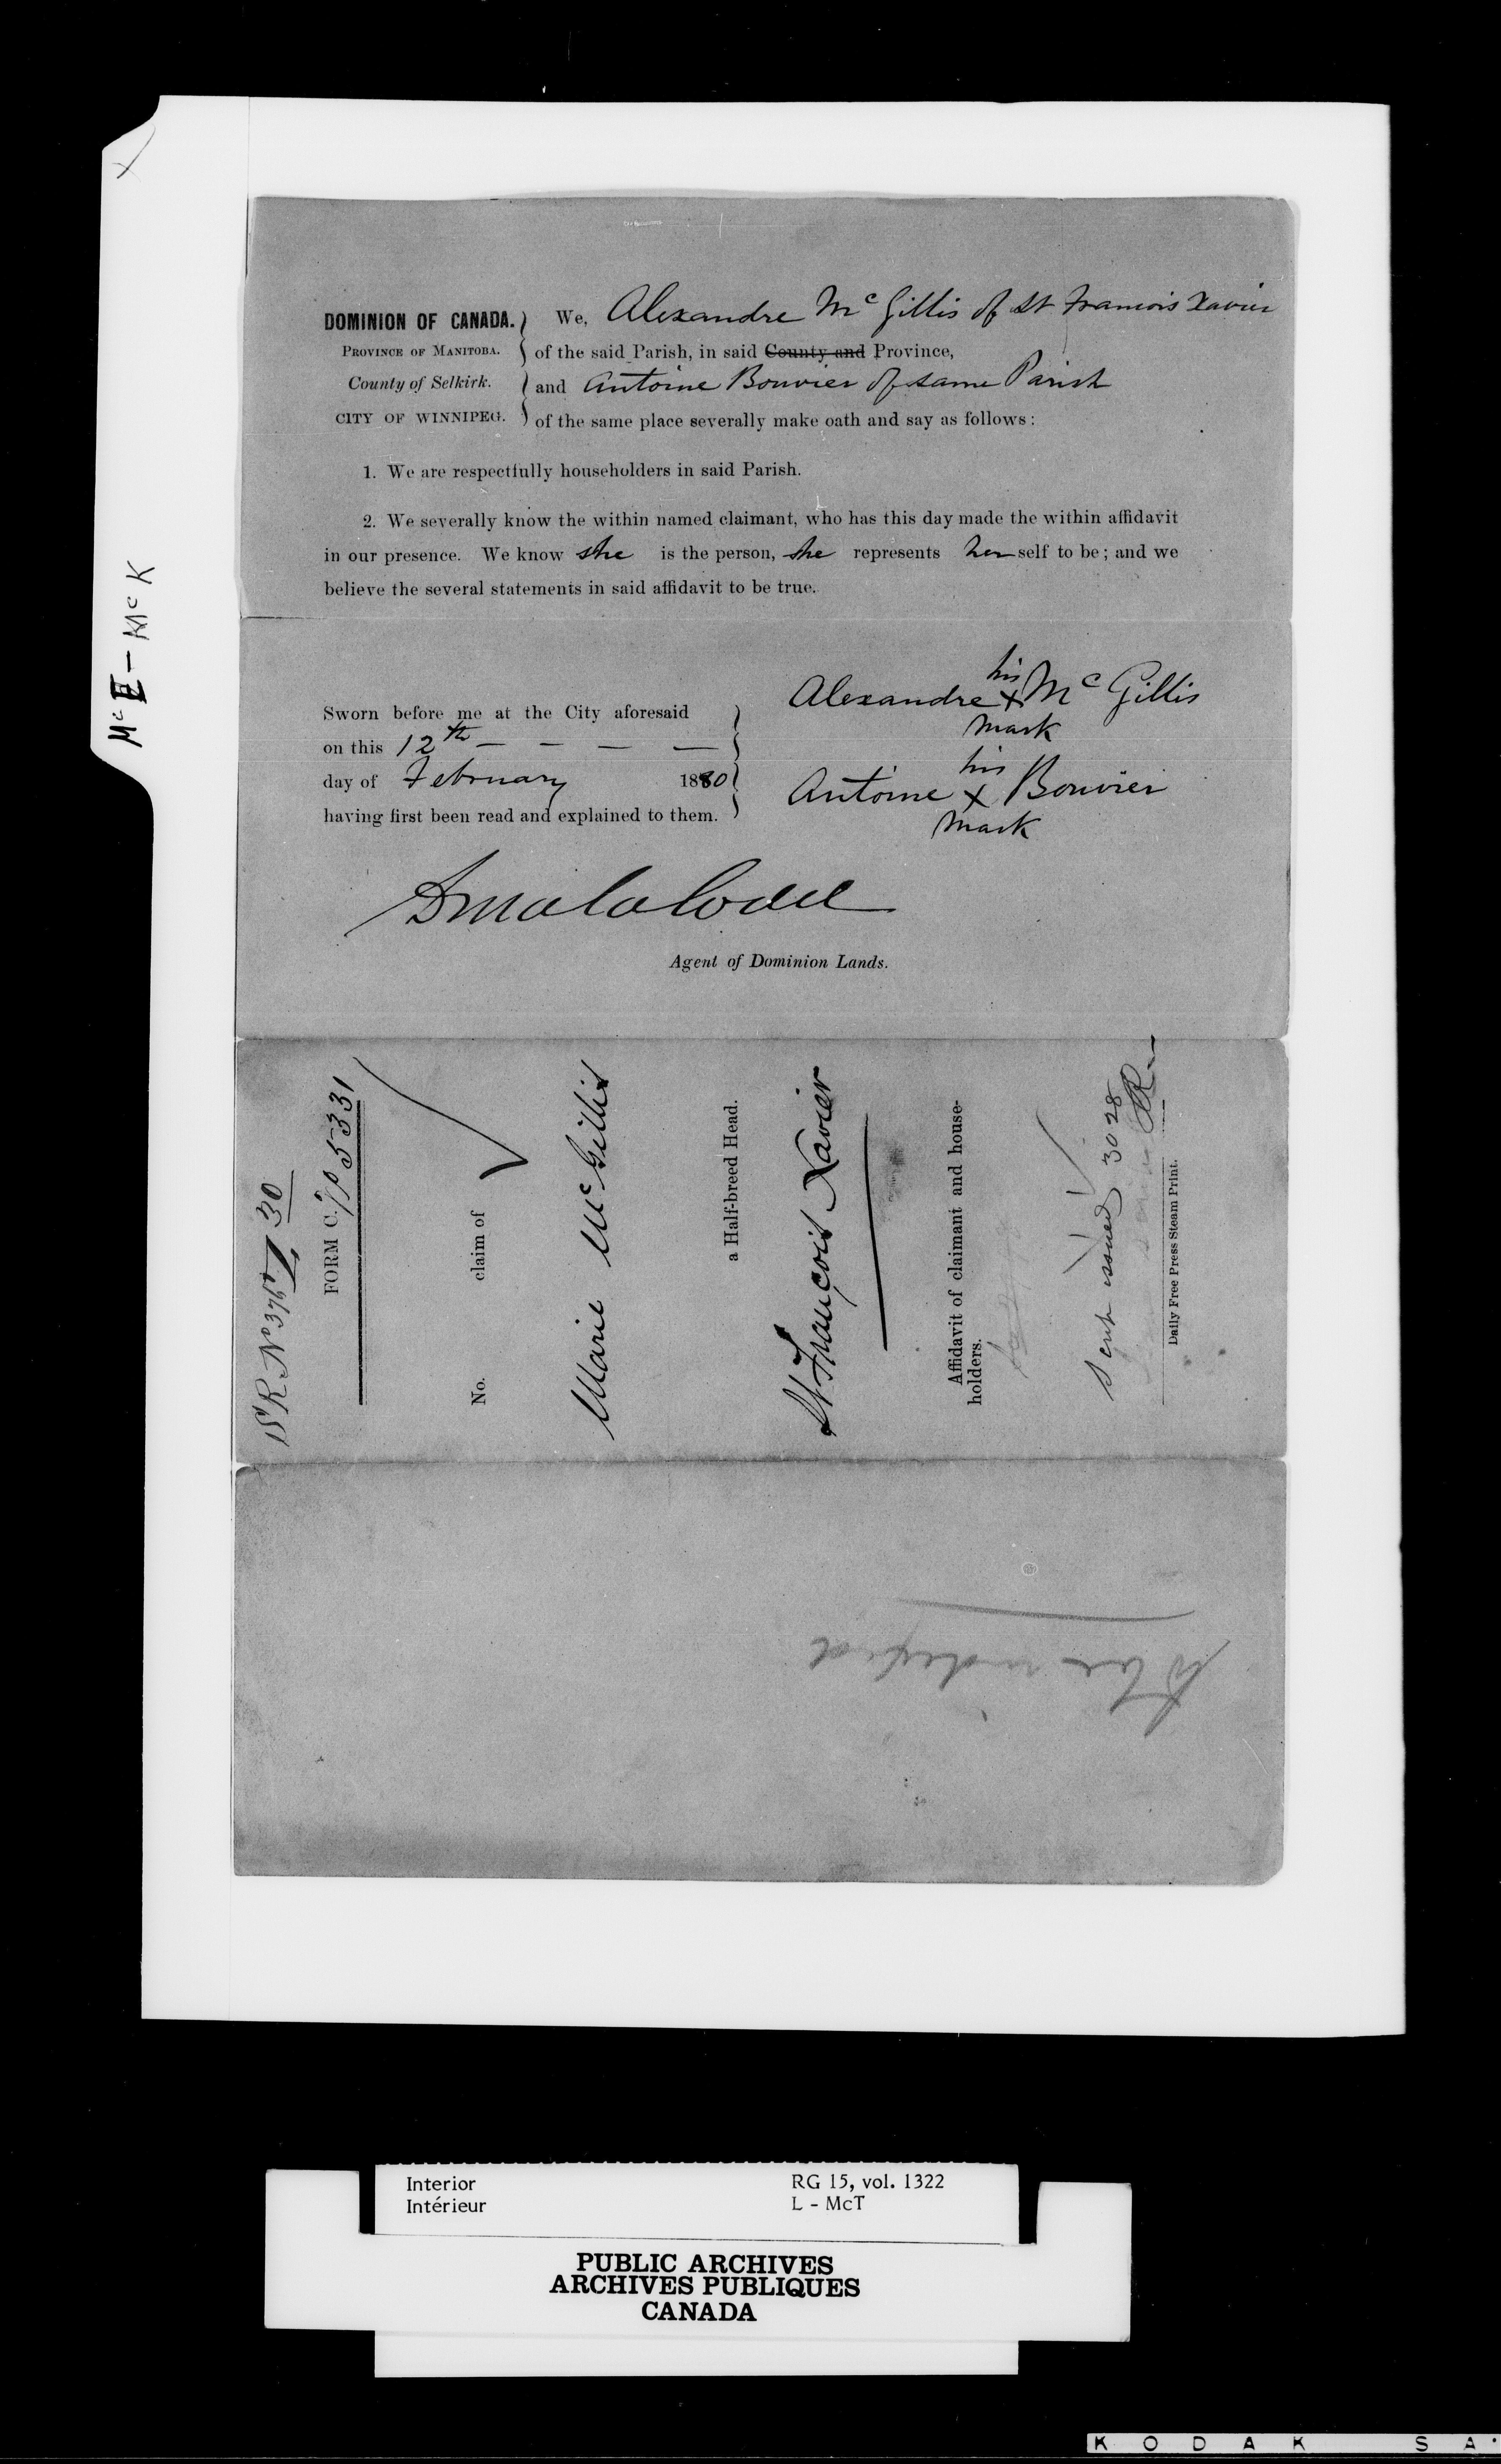 McE - McK
DOMINION OF CANADA. We, Alexandre McGillis of St Francois Xavier
PROVINCE OF MANITOBA. of the said Parish, in said County and Province,
County of Selkirk. and Antoine Bouvier of same Parish
CITY OF WINNIPEG. of the same place severally make oath and say as follows:
1. We are respectfully householders in said Parish.
2. We severally know the within named claimant, who has this day made the within affidavit
in our presence. We know she is the person, she represents herself to be; and we
believe the several statements in said affidavit to be true.
his
Alexandre X McGillis
mark
his
Antoine X Bouvier
mark
Sworn before me at the City aforesaid
on this 12th — — — —
day of February 1880
having first been read and explained to them.
Agent of Dominion Lands.
30
FORM C. 5331
No. claim of
Marie McGillis
a Half-breed Head.
St François Xavier
Affidavit of claimant and house-
holders.
Scrip issued 3028
Daily Free Press Steam Print.
to be indexed
Interior RG 15, vol. 1322
Intérieur L - McT
PUBLIC ARCHIVES
ARCHIVES PUBLIQUES
CANADA
KODAK SA